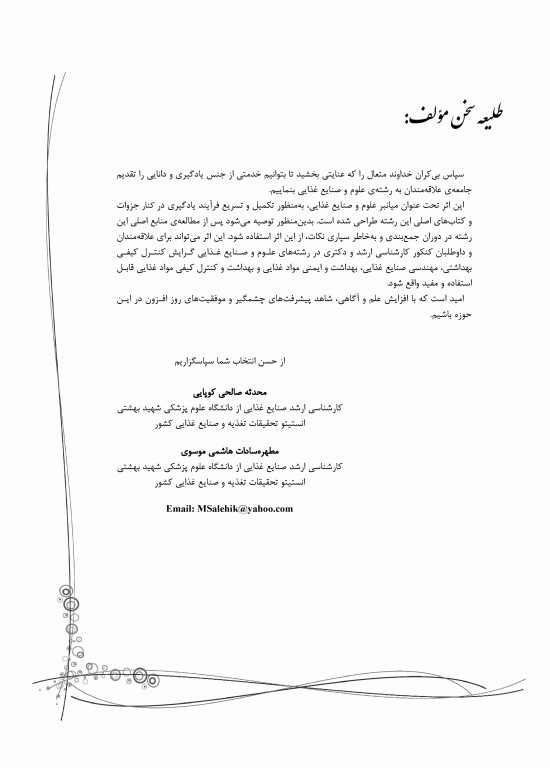 طلیعه سخن مؤلف:
سپاس بی‌کران خداوند متعال را که عنایتی بخشید تا بتوانیم خدمتی از جنس یادگیری و دانایی را تقدیم
جامعه‌ی علاقه‌مندان به رشته‌ی علوم و صنایع غذایی بنماییم.
این اثر تحت عنوان میانبر علوم و صنایع غذایی، به‌منظور تکمیل و تسریع فرآیند یادگیری در کنار جزوات
و کتاب‌های اصلی این رشته طراحی شده است. بدین‌منظور توصیه می‌شود پس از مطالعه‌ی منابع اصلی این
رشته در دوران جمع‌بندی و به‌خاطر سپاری نکات، از این اثر استفاده شود. این اثر می‌تواند برای علاقه‌مندان
و داوطلبان کنکور کارشناسی ارشد و دکتری در رشته‌های علـوم و صـنایع غـذایی گـرایش کنتـرل کیفـی
بهداشتی، مهندسی صنایع غذایی، بهداشت و ایمنی مواد غذایی و بهداشت و کنترل کیفی مواد غذایی قابـل
استفاده و مفید واقع شود.
امید است که با افزایش علم و آگاهی، شاهد پیشرفت‌های چشمگیر و موفقیت‌های روز افـزون در ایـن
حوزه باشیم.
از حسن انتخاب شما سپاسگزاریم
محدثه صالحی کوپایی
کارشناسی ارشد صنایع غذایی از دانشگاه علوم پزشکی شهید بهشتی
انستیتو تحقیقات تغذیه و صنایع غذایی کشور
مطهره‌سادات هاشمی موسوی
کارشناسی ارشد صنایع غذایی از دانشگاه علوم پزشکی شهید بهشتی
انستیتو تحقیقات تغذیه و صنایع غذایی کشور
Email: MSalehik@yahoo.com